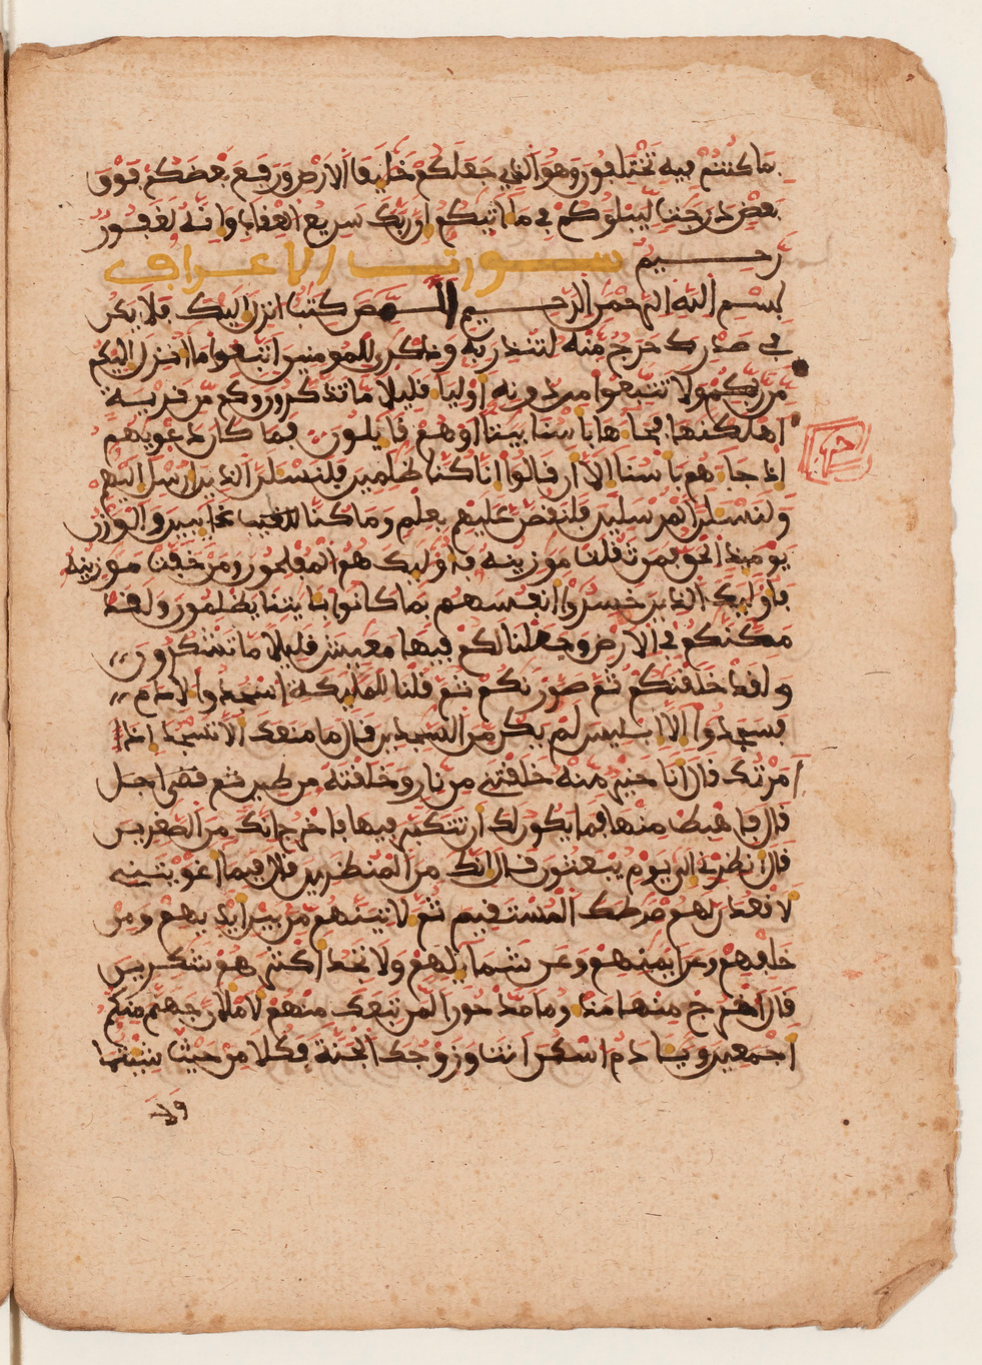 ما كنتم فيه تختلفون وهو الذي جعلكم خليف الارض ورفع بعضكم فوق
بعض درجت ليبلوكم في ما اتيكم ان ربك سريع العقاب وانه لغفور
رحيم سورت الاعراف
بسم الله الرحمن الرحيم المص كتب انزل اليك فلا يكن
في صدرك حرج منه لتنذر به وذكرى للمومنين اتبعوا ما انزل اليكم
من ربكم ولا تتبعوا من دونه اوليا قليلا ما تذكرون وكم من قرية
اهلكنها فجاها باسنا بيتا او هم قايلون فما كان دعويهم
اذ جاهم باسنا الا ان قالوا انا كنا ظلمين فلنسلن الذين ارسل اليهم
ولنسلن المرسلين فلنقصن عليهم بعلم وما كنا غايبين والوزن
يوميذ الحق فمن ثقلت موزينه فاوليك هم المفلحون ومن خفت موزينه
فاوليك الذين خسروا انفسهم بما كانوا بايتنا يظلمون ولقد
مكنكم في الارض وجعلنا لكم فيها معيش قليلا ما تشكرون
ولقد خلقنكم ثم صورنكم ثم قلنا للمليكة اسجدوا لادم
فسجدوا الا ابليس لم يكن من السجدين قال ما منعك الا تسجد اذ
امرتك قال انا خير منه خلقتني من نار وخلقته من طين ثم قضى اجل
قال فاهبط منها فما يكون لك ان تتكبر فيها فاخرج انك من الصغرين
قال انظرني الى يوم يبعثون قال انك من المنظرين قال فبما اغويتني
لاقعدن لهم صرطك المستقيم ثم لاتينهم من بين ايديهم ومن
خلفهم وعن ايمنهم وعن شمايلهم ولا تجد اكثرهم شكرين
قال اخرج منها مذوما مدحورا لمن تبعك منهم لاملان جهنم منكم
اجمعين ويادم اسكن انت وزوجك الجنة فكلا من حيث شيتما
ولا